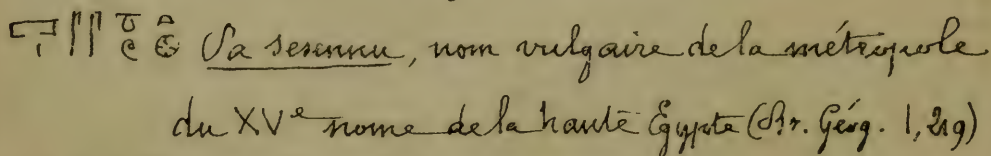 Pa sesennu, nom vulgaire de la métropole
du XVe nome de la haute Égypte (Br. Géog. 1, 219)